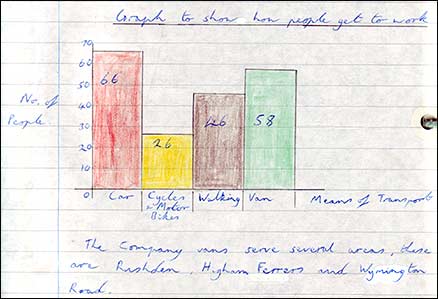 Graph to show how people get to work
70
60
50
40
30
20
10
0
No. of
People
66
26
46
58
Car
Cycles
& Motor
Bikes
Walking
Van
Means of Transport
The Company vans serve several areas, these
are Rushden, Higham Ferrers and Wymington
Road.